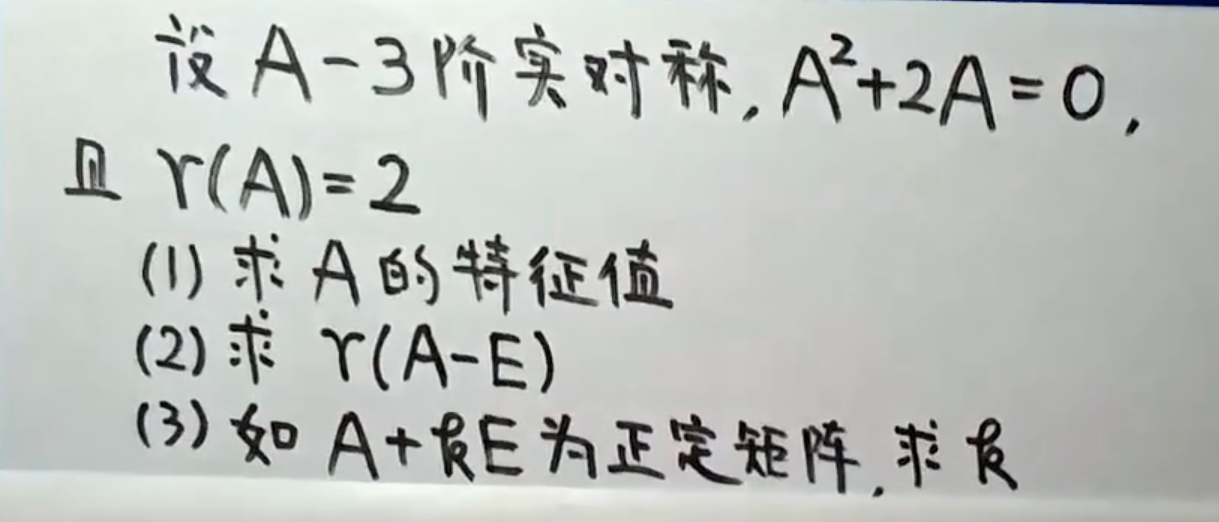 设 A-3阶实对称, A²+2A=0,
且 r(A)=2
(1) 求 A 的特征值
(2) 求 r(A-E)
(3) 如 A+kE 为正定矩阵, 求 k